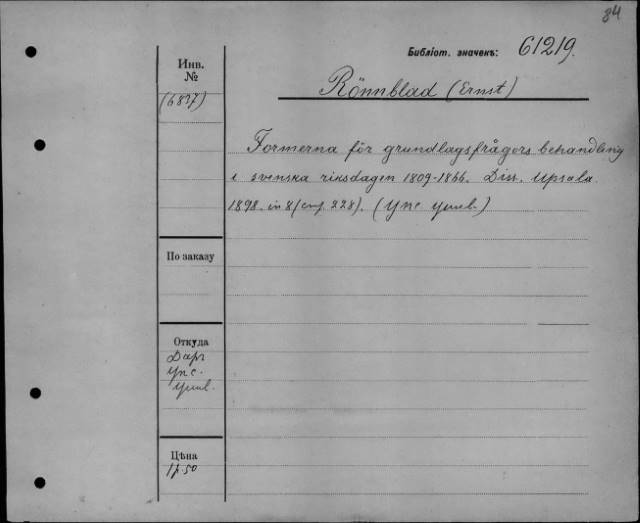 84
Библіот. значекъ: 61219.
Rönnblad (Ernst)
Инв.
№
(6837)
Formerna för grundlagsfrågors behandling
i svenska riksdagen 1809-1866. Diss. Upsala
1898. in 8 (стр. 228). (Упс. унив.)
По заказу
Откуда
Даръ
Упс.
унив.
Цѣна
1 р. 50